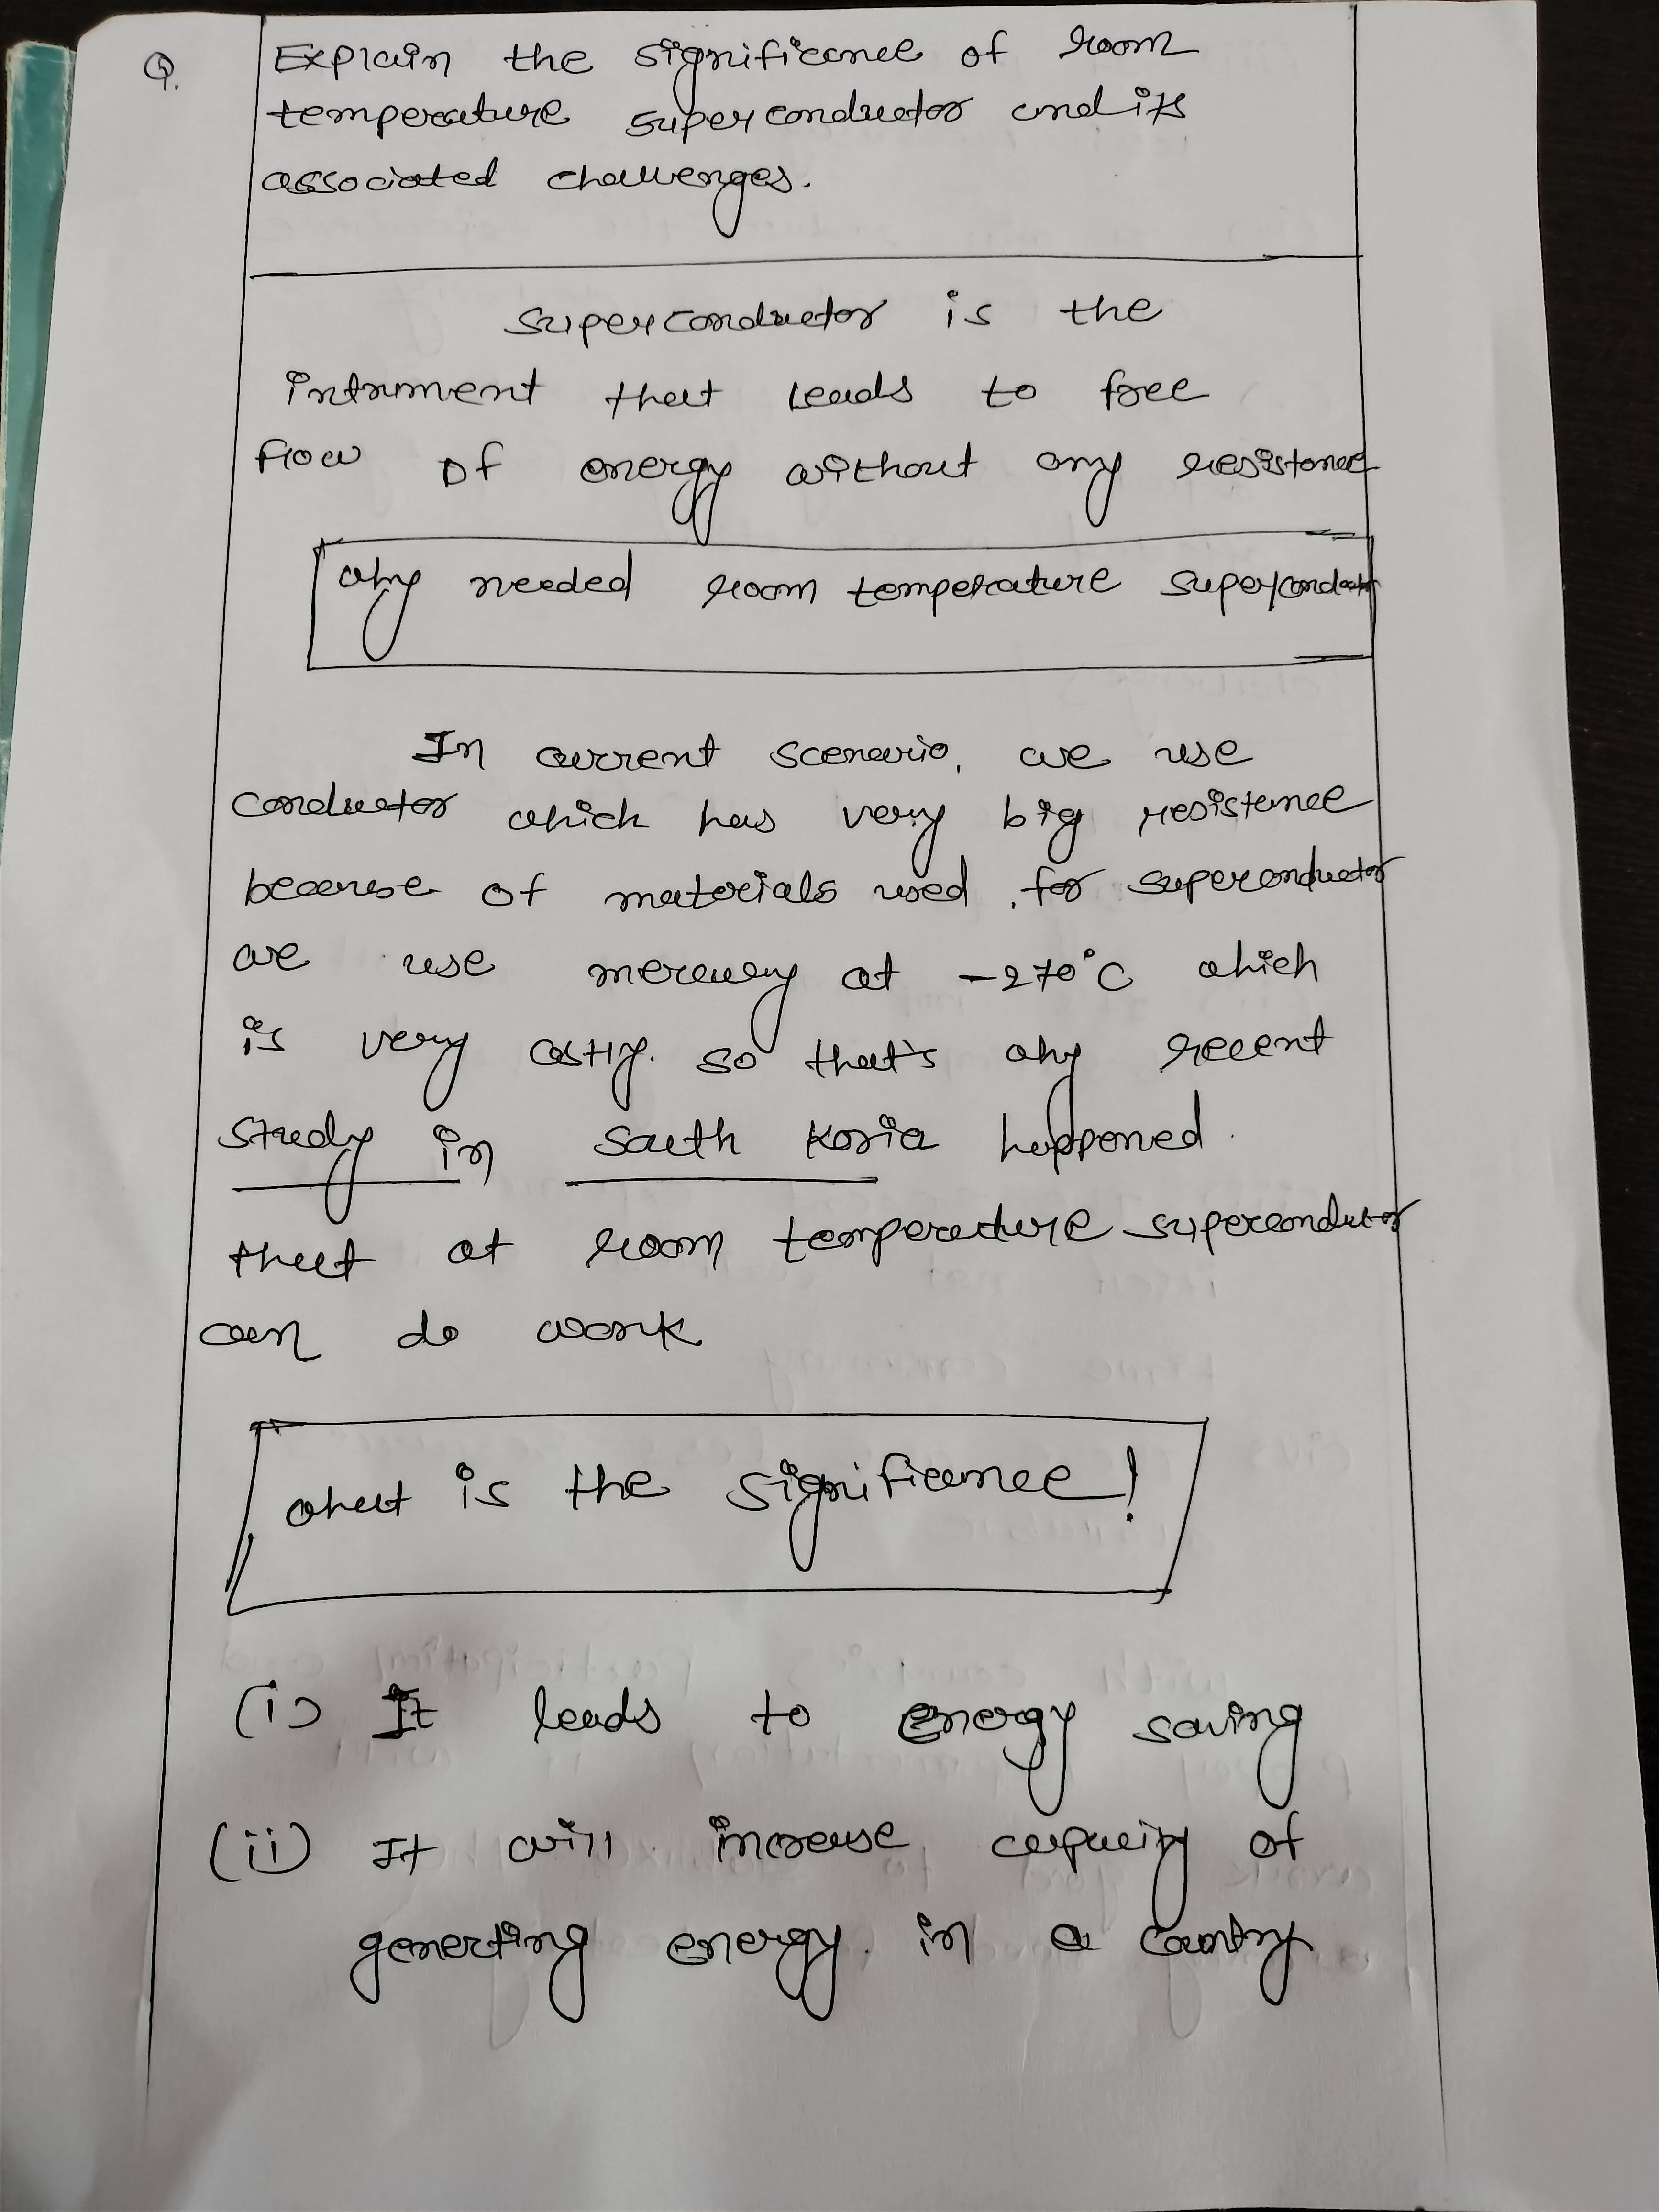 Q. Explain the significance of room
temperature superconductor and its
associated challenges.
superconductor is the
intrument that leads to free
flow of energy without any resistance
why needed room temperature superconductor
In current scenario, we use
conductor which has very big resistance
because of materials used. for superconductor
we use mercury at -270°C which
is very costly. so that's why recent
study in south Koria happened
that at room temperature superconductor
can do work
what is the significance!
(i) It leads to energy saving
(ii) It will increase capacity of
generting energy in a country